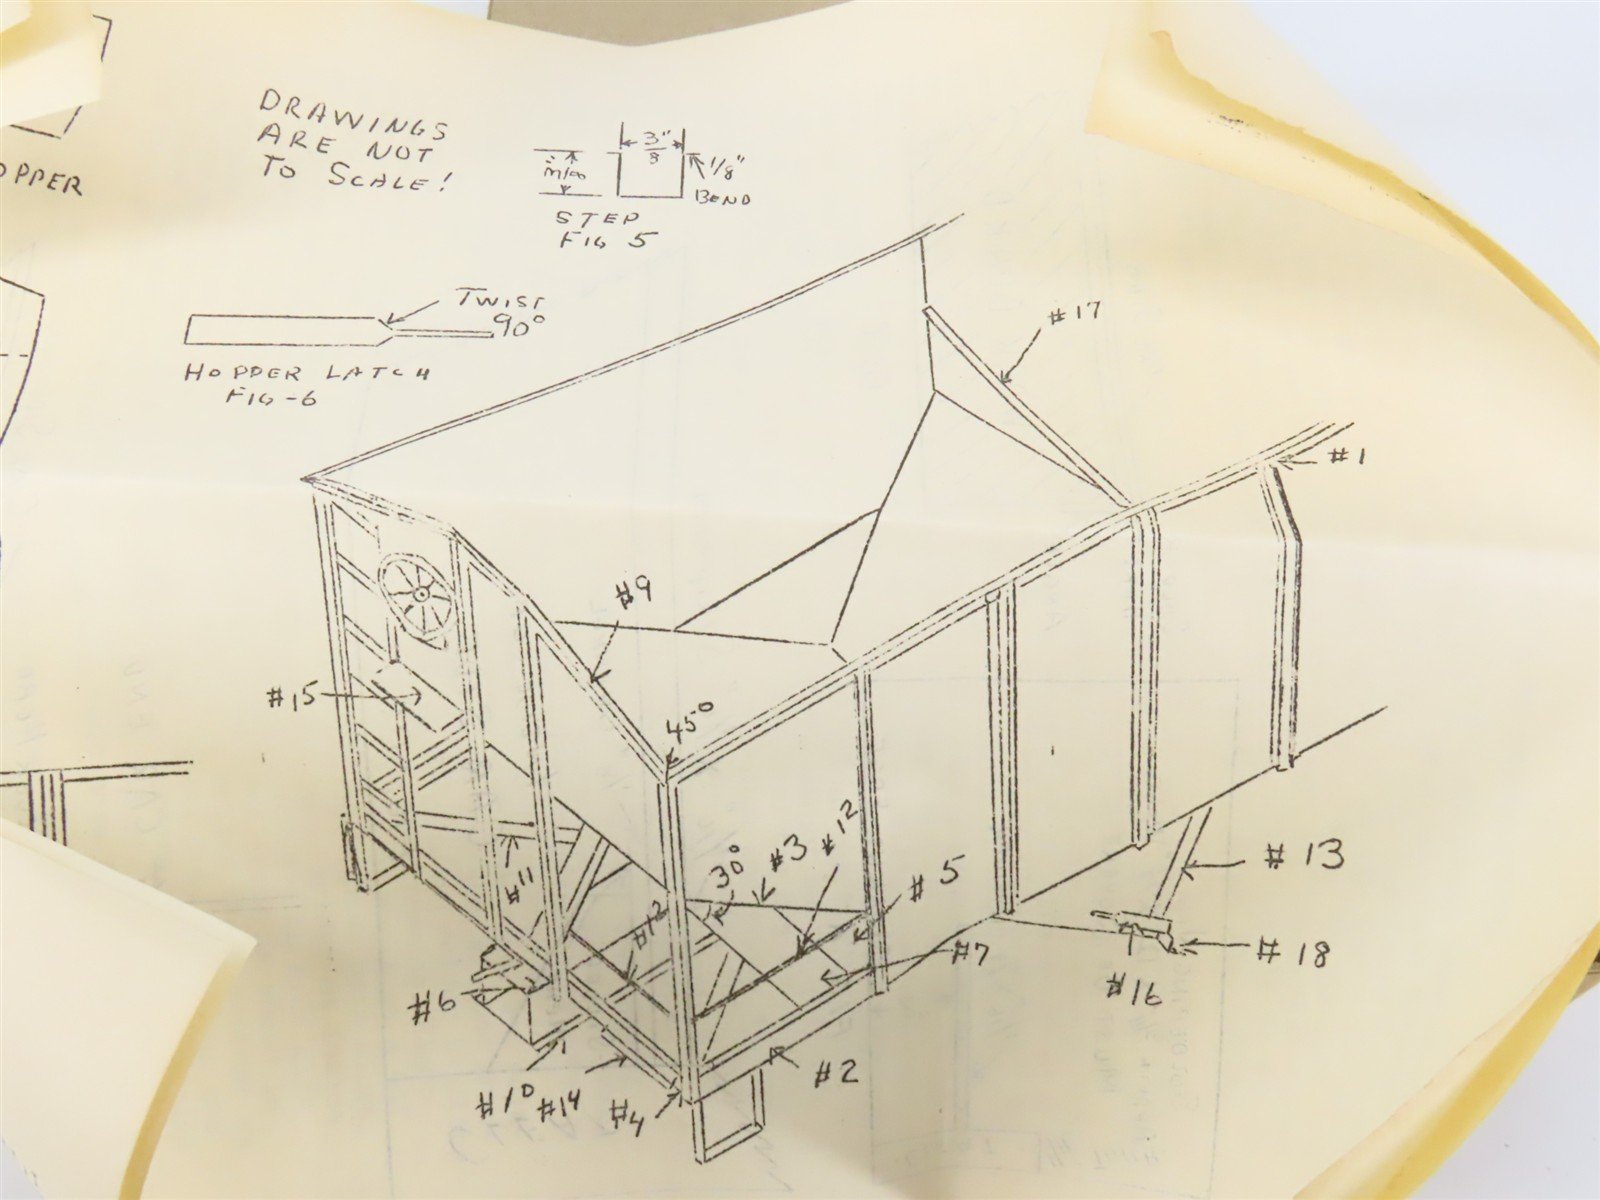 DRAWINGS
ARE NOT
TO SCALE!
3"
8
1/8"
BEND
STEP
FIG 5
OPPER
TWIST
90°
HOPPER LATCH
FIG-6
#17
#1
#9
#15
45°
#12
#3
30°
#5
#11
#12
#13
#7
#18
#16
#6
#2
#10
#14
#4